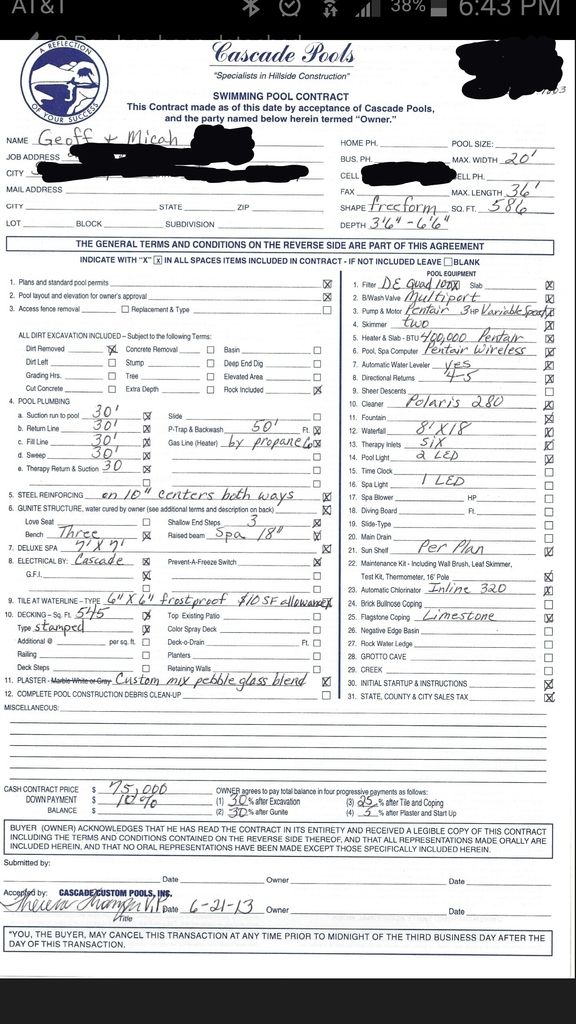 AT&T 38% 6:43 PM
A REFLECTION
OF YOUR SUCCESS
Cascade Pools
"Specialists in Hillside Construction"
SWIMMING POOL CONTRACT
This Contract made as of this date by acceptance of Cascade Pools,
and the party named below herein termed "Owner."
NAME Geoff + Micah HOME PH. POOL SIZE:
JOB ADDRESS BUS. PH. MAX. WIDTH 20'
CITY CELL CELL PH.
MAIL ADDRESS FAX MAX. LENGTH 36'
CITY STATE ZIP SHAPE freeform SQ. FT. 586
LOT BLOCK SUBDIVISION DEPTH 3'6" - 6'6"
THE GENERAL TERMS AND CONDITIONS ON THE REVERSE SIDE ARE PART OF THIS AGREEMENT
INDICATE WITH "X" X IN ALL SPACES ITEMS INCLUDED IN CONTRACT - IF NOT INCLUDED LEAVE BLANK
1. Plans and standard pool permits X
2. Pool layout and elevation for owner's approval X
3. Access fence removal Replacement & Type
ALL DIRT EXCAVATION INCLUDED – Subject to the following Terms:
Dirt Removed X Concrete Removal Basin
Dirt Left Stump Deep End Dig
Grading Hrs. Tree Elevated Area
Cut Concrete Extra Depth Rock Included X
4. POOL PLUMBING
a. Suction run to pool 30' X Slide
b. Return Line 30' X P-Trap & Backwash 50' Ft. X
c. Fill Line 30' X Gas Line (Heater) by propane Co X
d. Sweep 30' X
e. Therapy Return & Suction 30 X
5. STEEL REINFORCING on 10" centers both ways X
6. GUNITE STRUCTURE, water cured by owner (see additional terms and description on back) X
Love Seat Shallow End Steps 3 X
Bench Three X Raised beam Spa 18" X
7. DELUXE SPA 7' X 7' X
8. ELECTRICAL BY: Cascade X Prevent-A-Freeze Switch X
G.F.I. X
9. TILE AT WATERLINE – TYPE 6" X 6" frostproof $10 SF allowance X
10. DECKING – Sq. Ft. 545 X Top Existing Patio
Type stamped X Color Spray Deck
Additional @ per sq. ft. Deck-o-Drain Ft.
Railing Planters
Deck Steps Retaining Walls
11. PLASTER - Marble White or Gray Custom mix pebble glass blend X
12. COMPLETE POOL CONSTRUCTION DEBRIS CLEAN-UP
POOL EQUIPMENT
1. Filter DE Quad 100 Slab X
2. B/Wash Valve Multiport X
3. Pump & Motor Pentair 3HP Variable Speed X
4. Skimmer two X
5. Heater & Slab - BTU 400,000 Pentair X
6. Pool, Spa Computer Pentair Wireless X
7. Automatic Water Leveler yes X
8. Directional Returns 4-5 X
9. Sheer Descents
10. Cleaner Polaris 280 X
11. Fountain
12. Waterfall 8' X 18 X
13. Therapy Inlets six X
14. Pool Light 2 LED X
15. Time Clock
16. Spa Light 1 LED X
17. Spa Blower HP
18. Diving Board Ft.
19. Slide-Type
20. Main Drain
21. Sun Shelf Per Plan X
22. Maintenance Kit - Including Wall Brush, Leaf Skimmer,
Test Kit, Thermometer, 16' Pole X
23. Automatic Chlorinator Inline 320 X
24. Brick Bullnose Coping
25. Flagstone Coping Limestone X
26. Negative Edge Basin
27. Rock Water Ledge
28. GROTTO CAVE
29. CREEK
30. INITIAL STARTUP & INSTRUCTIONS X
31. STATE, COUNTY & CITY SALES TAX X
MISCELLANEOUS:
CASH CONTRACT PRICE $ 75,000 OWNER agrees to pay total balance in four progressive payments as follows:
DOWN PAYMENT $ 10% (1) 30 % after Excavation (3) 25 % after Tile and Coping
BALANCE $ (2) 30 % after Gunite (4) 5 % after Plaster and Start Up
BUYER (OWNER) ACKNOWLEDGES THAT HE HAS READ THE CONTRACT IN ITS ENTIRETY AND RECEIVED A LEGIBLE COPY OF THIS CONTRACT
INCLUDING THE TERMS AND CONDITIONS CONTAINED ON THE REVERSE SIDE THEREOF, AND THAT ALL REPRESENTATIONS MADE ORALLY ARE
INCLUDED HEREIN, AND THAT NO ORAL REPRESENTATIONS HAVE BEEN MADE EXCEPT THOSE SPECIFICALLY INCLUDED HEREIN.
Submitted by:
Date Owner Date
Accepted by: CASCADE CUSTOM POOLS, INC.
Theresa V.P. Date 6-21-13 Owner Date
Title
"YOU, THE BUYER, MAY CANCEL THIS TRANSACTION AT ANY TIME PRIOR TO MIDNIGHT OF THE THIRD BUSINESS DAY AFTER THE
DAY OF THIS TRANSACTION.